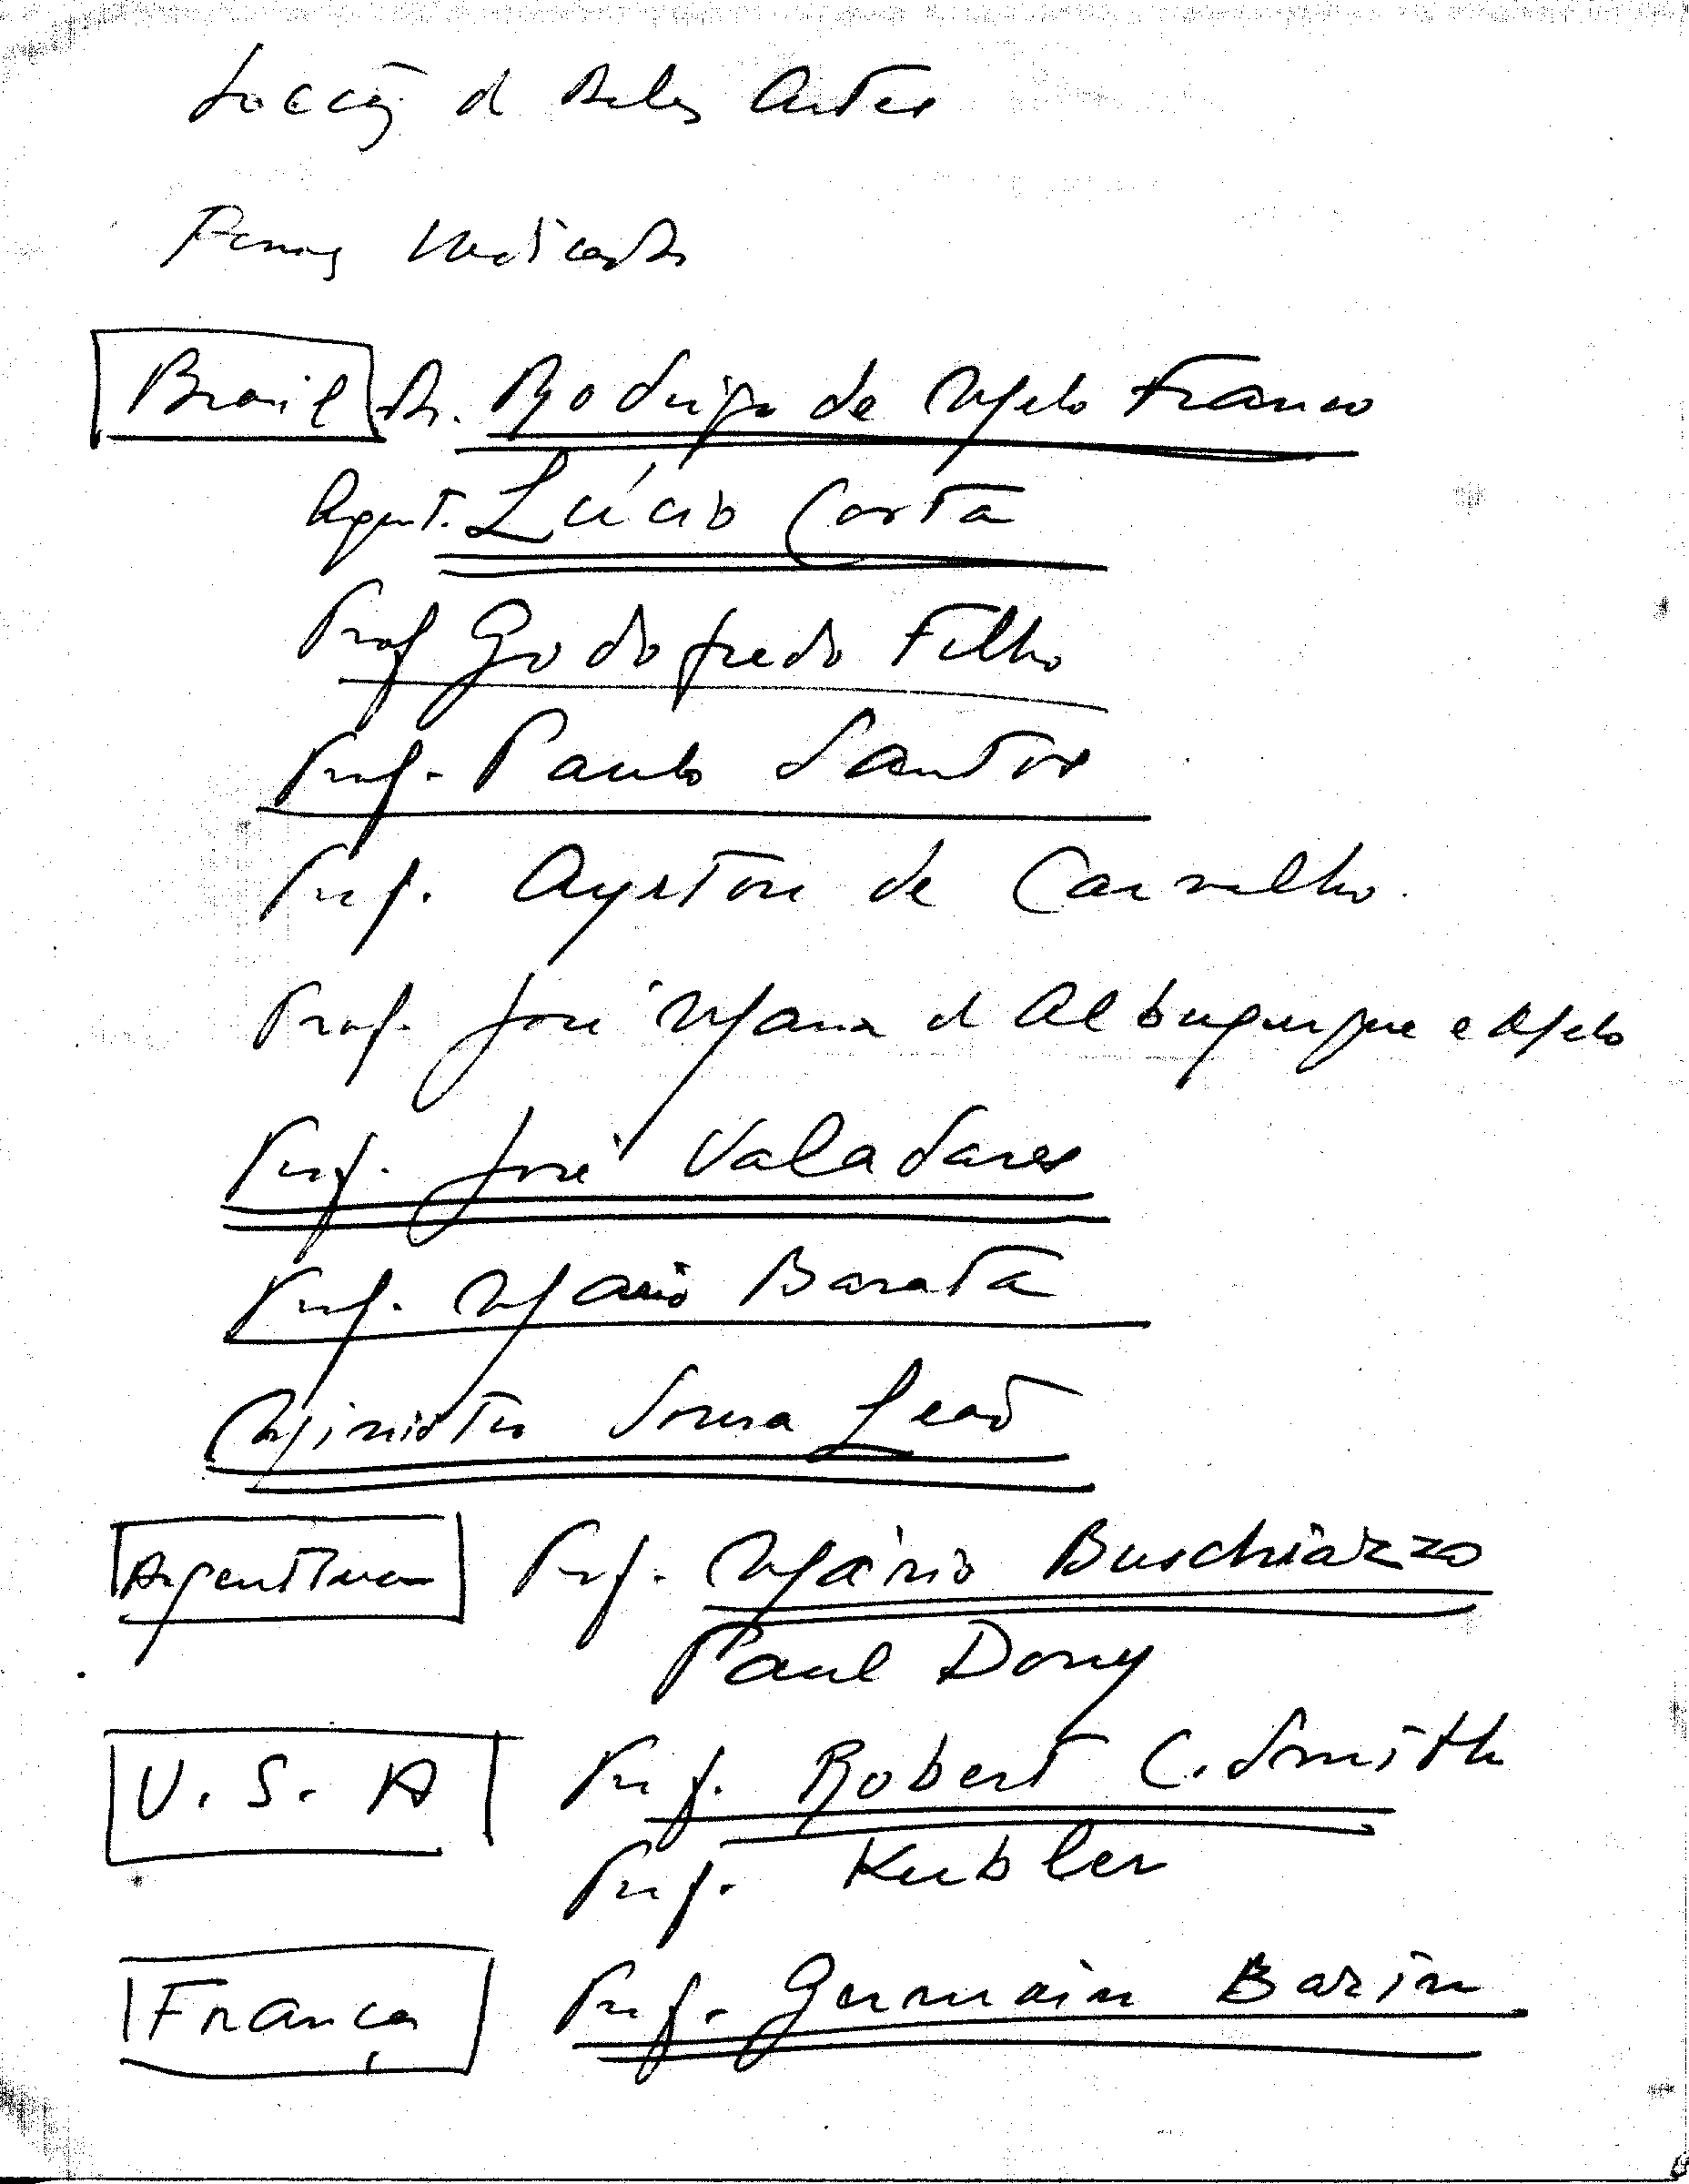 Secção d Belas Artes
Pessoas Indicadas
Brasil Dr. Rodrigo de Melo Franco
Arquit. Lúcio Costa
Prof Godofredo Filho
Prof. Paulo Santos
Prof. Ayrton de Carvalho.
Prof. José Maria d Albuquerque e Melo
Prof. José Valadares
Prof. Mário Barata
Ministro Sousa Leão
Argentina Prof. Mário Buschiazzo
Paul Dony
U.S.A Prof. Robert C. Smith
Prof. Kubler
França Prof. Germain Bazin